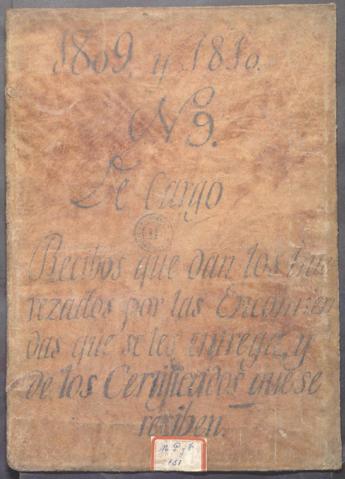 1809. y 1810.
Nº 9.
De Cargo
Recibos que dan los Inte-
rezados por las Encomien
das que se les entregā, y
de los Certificados que se
resiben.
151